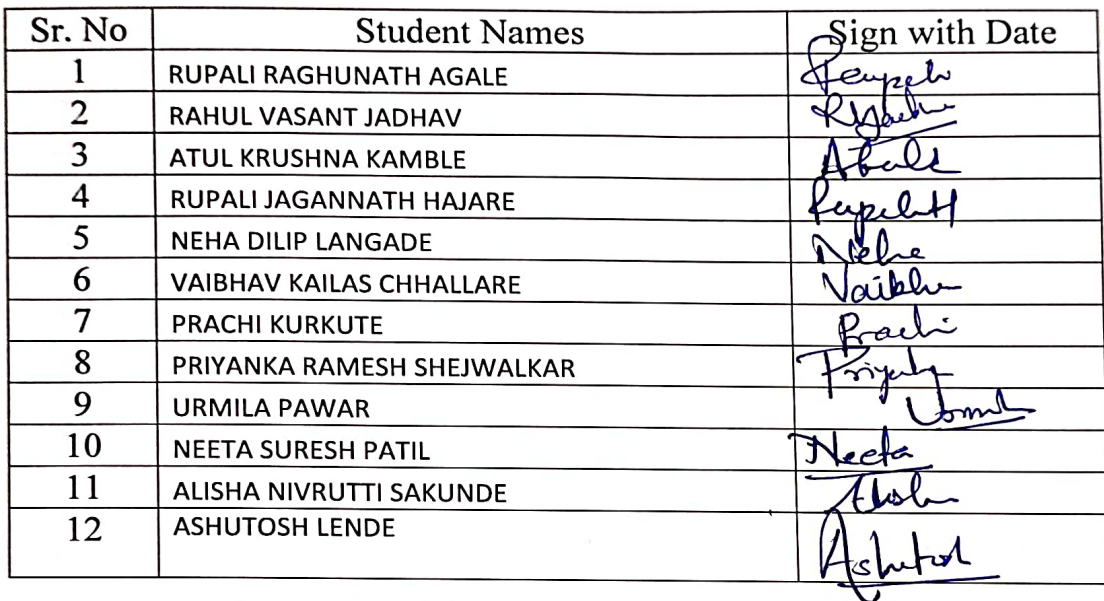 Sr. No Student Names Sign with Date
1 RUPALI RAGHUNATH AGALE
2 RAHUL VASANT JADHAV
3 ATUL KRUSHNA KAMBLE
4 RUPALI JAGANNATH HAJARE RupaliH
5 NEHA DILIP LANGADE Neha
6 VAIBHAV KAILAS CHHALLARE
7 PRACHI KURKUTE Prachi
8 PRIYANKA RAMESH SHEJWALKAR
9 URMILA PAWAR
10 NEETA SURESH PATIL Neeta
11 ALISHA NIVRUTTI SAKUNDE
12 ASHUTOSH LENDE Ashutosh